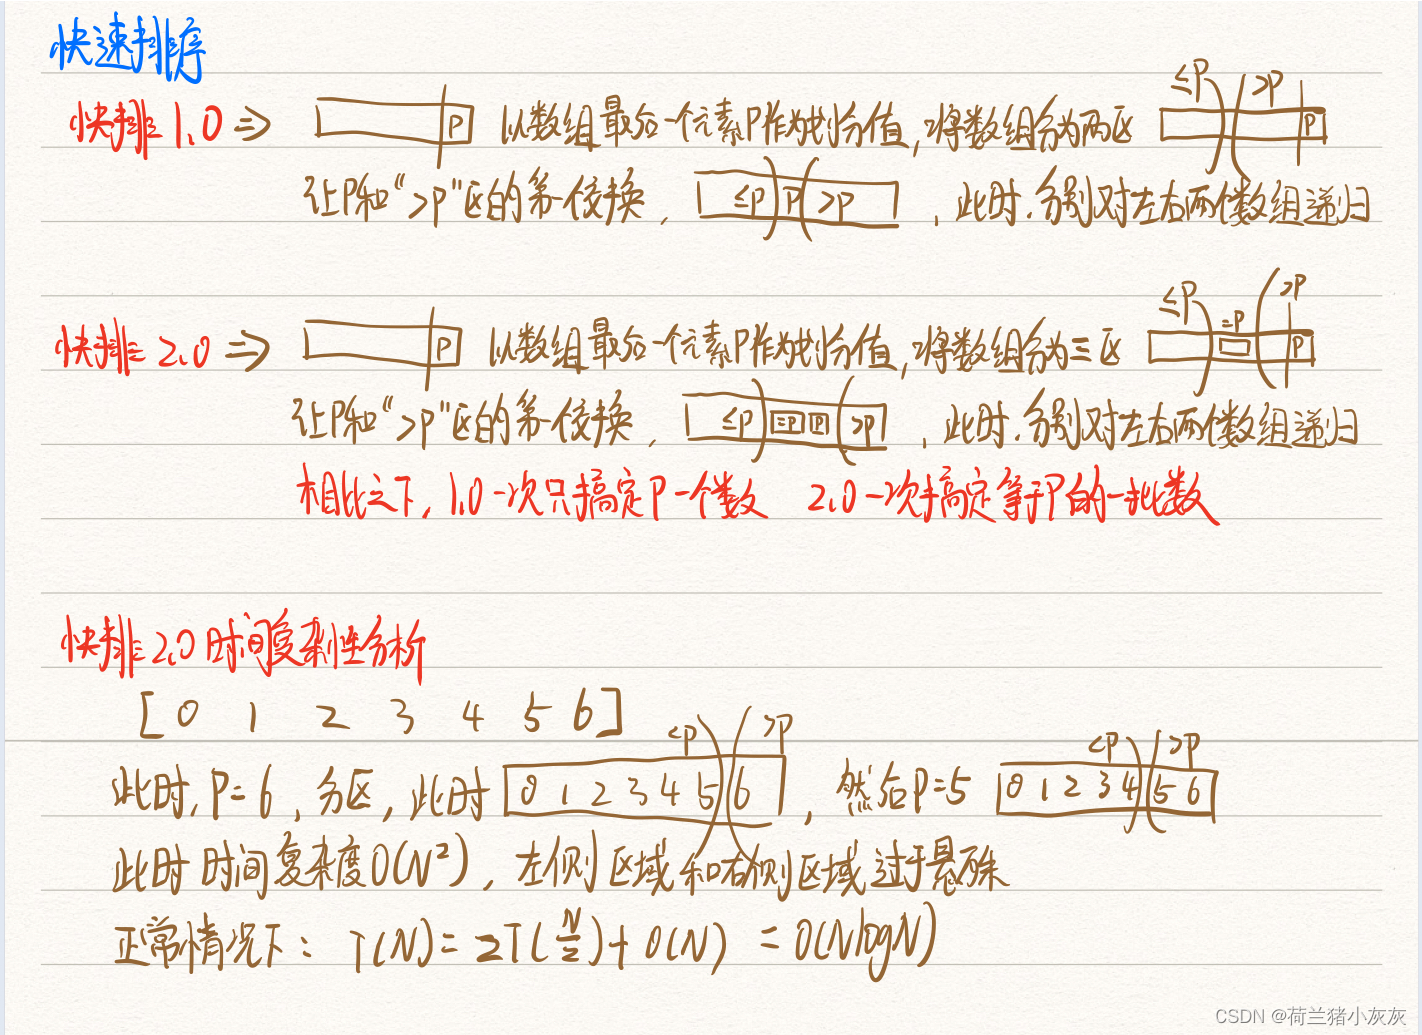 快速排序
≤P >P
快排1.0 => P 以数组最后一个元素P作为划分值,将数组分为两区 P
让P和“>P”区的第一位交换, ≤P P >P ,此时.分别对左右两个数组递归
≤P =P >P
快排2.0 => P 以数组最后一个元素P作为划分值,将数组分为三区 P
让P和“>P”区的第一位交换, ≤P =P P >P ,此时.分别对左右两个数组递归
相比之下,1.0一次只搞定P一个数 2.0一次搞定等于P的一批数
快排2.0时间复杂性分析
[0 1 2 3 4 5 6]
<P >P <P >P
此时,P=6,分区,此时 0 1 2 3 4 5 6 ,然后P=5 0 1 2 3 4 5 6
此时时间复杂度O(N²),左侧区域和右侧区域过于悬殊
正常情况下: T(N)=2T(N/2)+O(N) =O(NlogN)
CSDN @荷兰猪小灰灰